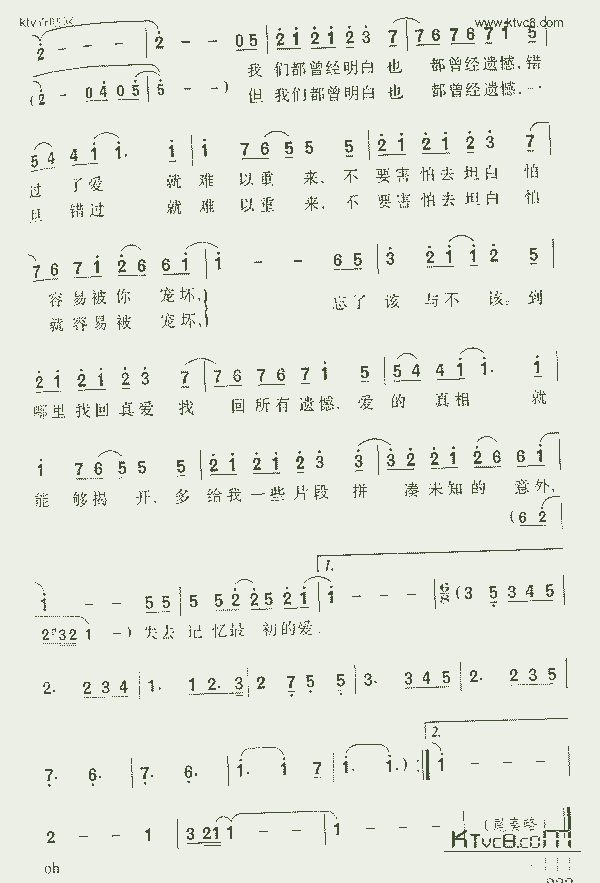 www.ktvc8.com
2 - - | 2 - - 05 | 21 21 23 7 | 76 767 1 5
我们都曾经明白也 都曾经遗憾,错
(2 - 04 05 | 5 - -) 但我们都曾明白也 都曾经遗憾,…
54 4 1 1. 1 | 1 76 5 5 5 | 21 21 23 7
过 了爱 就难 以重 来,不要害怕去坦白怕
且 错过 就难 以重 来,不要害怕去坦白怕
76 71 26 61 | 1 - - 65 | 3 21 12 5
容易被你 宠坏, 忘了 该 与不 该。到
就容易被 宠坏,
21 21 23 7 | 76 76 71 5 | 54 41 1. 1
哪里找回真爱找 回所有遗憾,爱 的 真相 就
1 76 5 5 5 | 21 21 23 3 | 32 21 26 61
能 够揭 开,多给我一些片段拼 凑未知的 意外,
(62
1 - - 55 | 5 52 25 21 | 1 - - | 6/8 (3 5345
1.
2#321 -) 失去 记忆最 初的爱.
2. 234 | 1. 12.3 | 2 7 5 5 | 3. 345 | 2. 235
7. 6. | 7. 6. | 1. 1 7 | 1. 1.) :‖ 1 - - -
2.
2 - - 1 | 321 1 - - | 1 - - (尾奏略)
oh
KTvc8.com